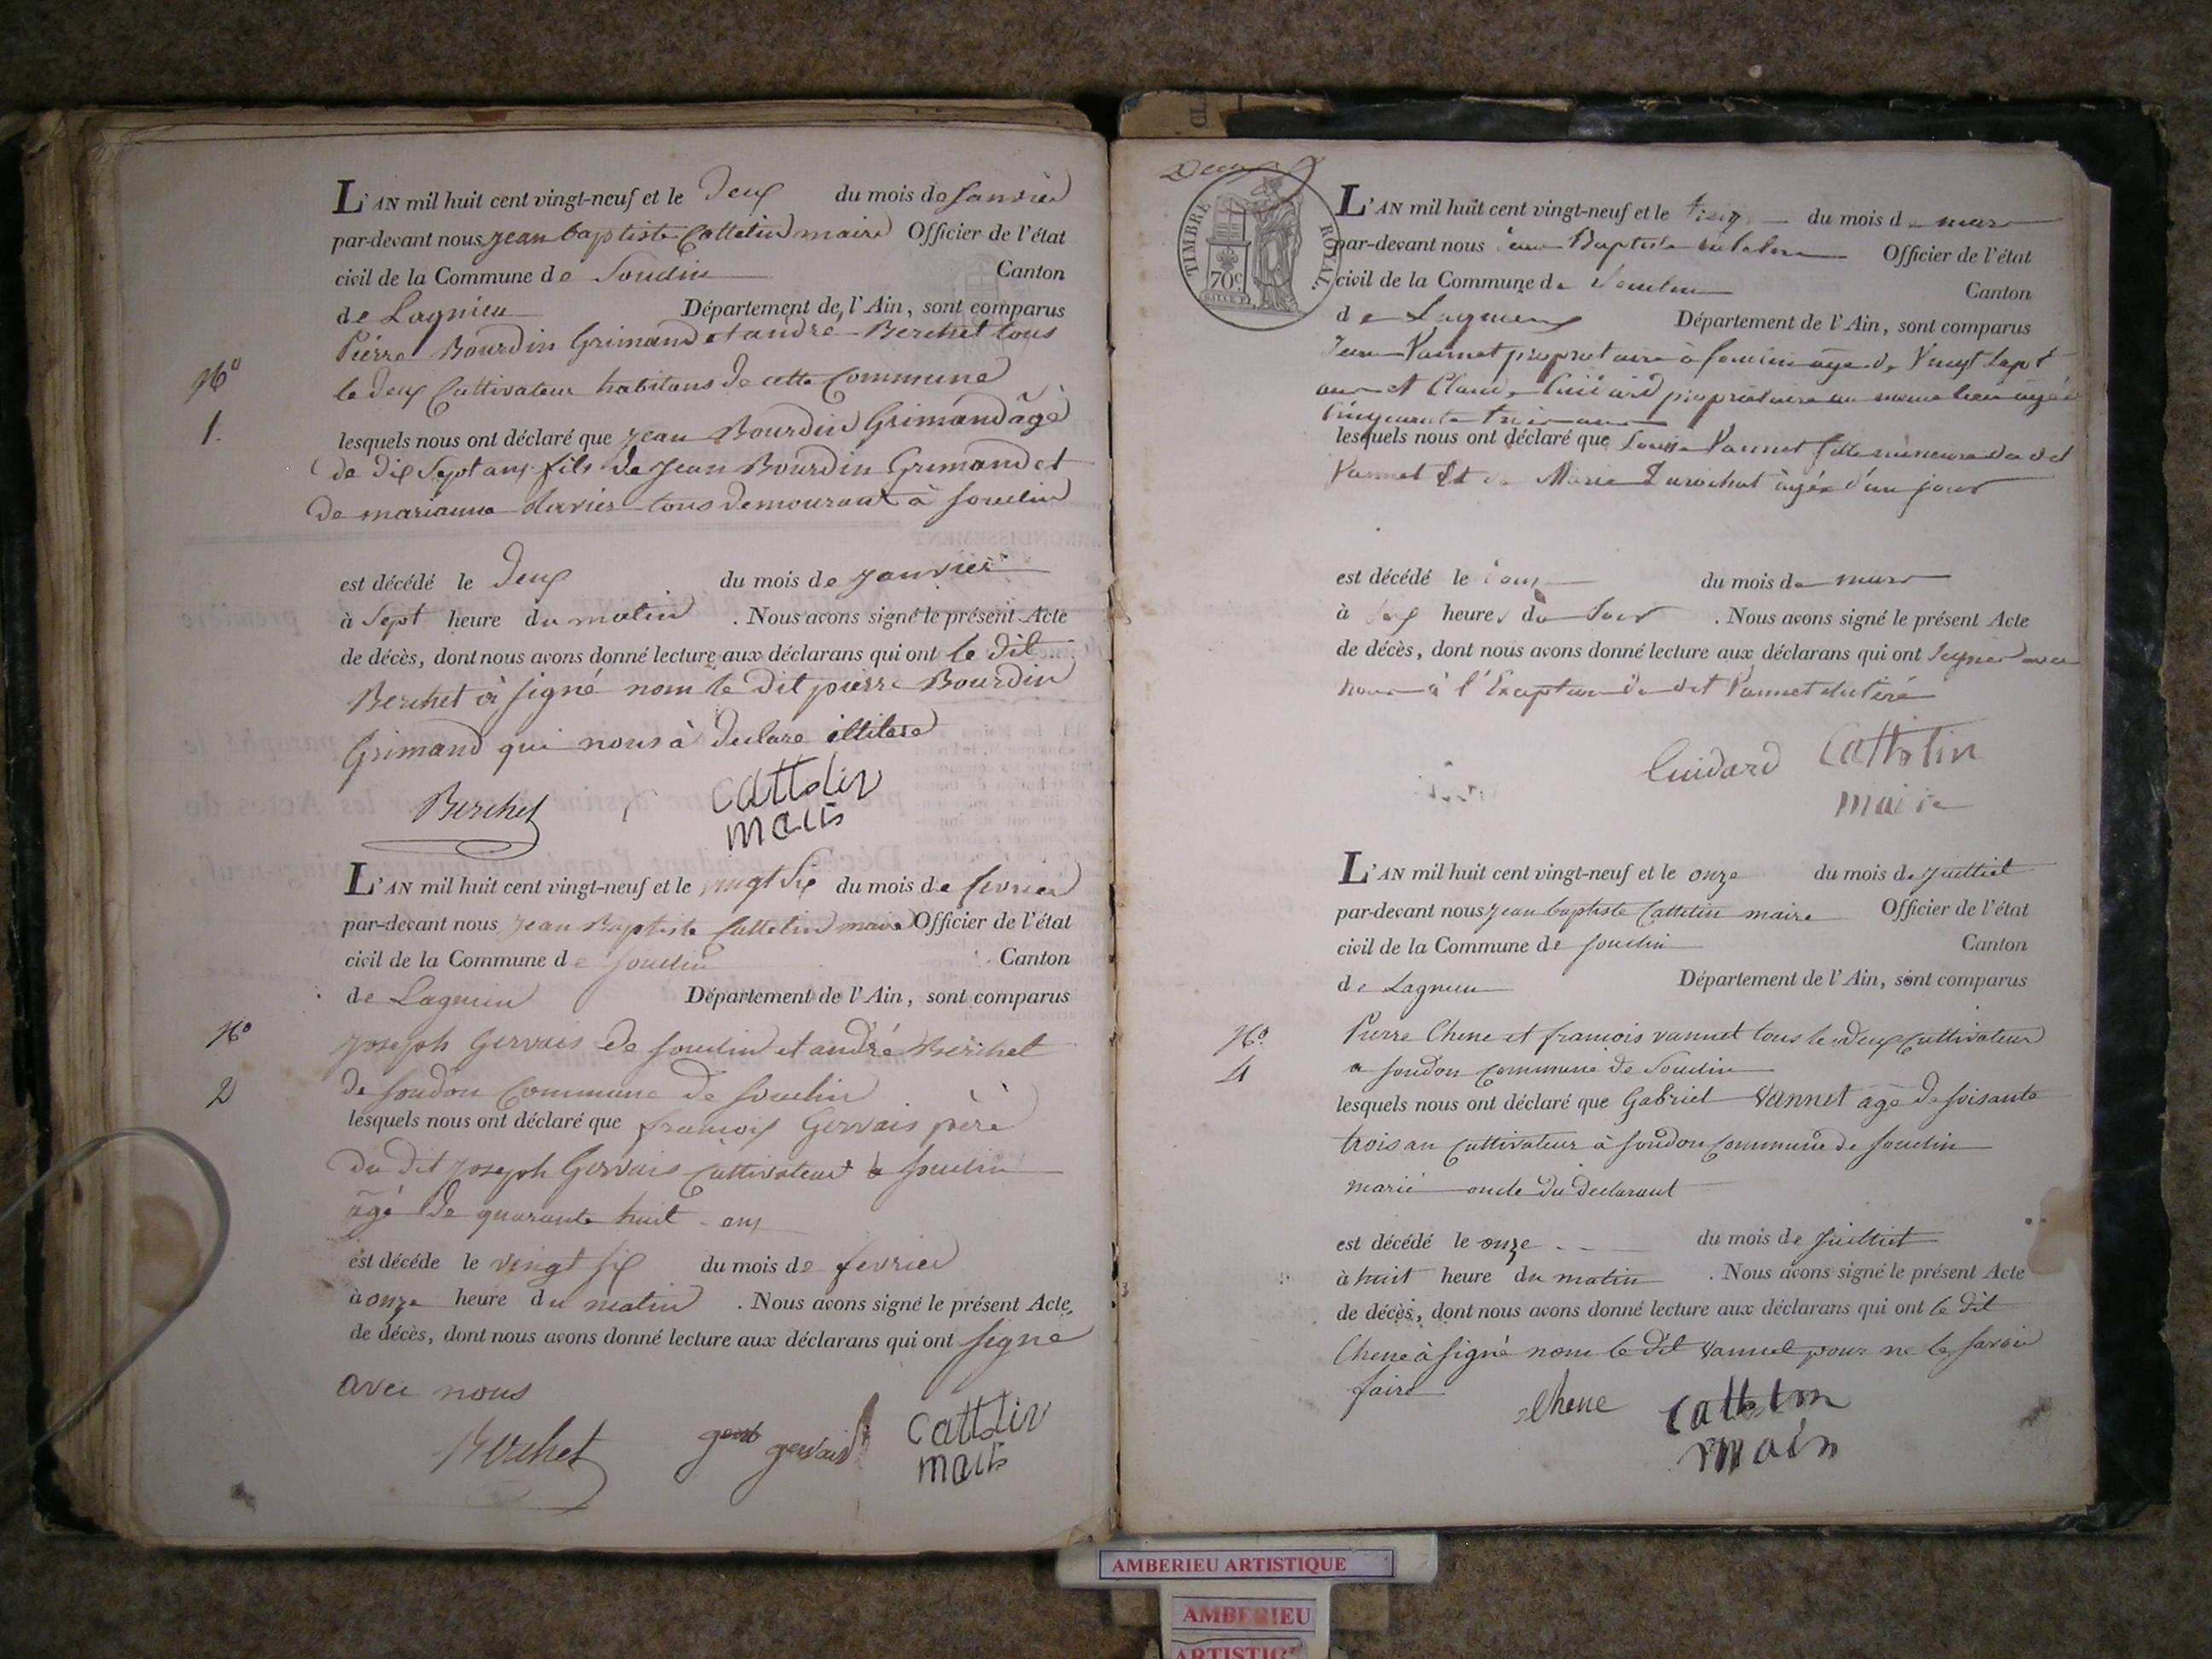 L'AN mil huit cent vingt-neuf et le Deux du mois de Janvier
par-devant nous Jean baptiste Cattelin maire Officier de l'état
civil de la Commune de Soudin Canton
de Lagnieu Département de l'Ain, sont comparus
Pierre Bourdin Grimand et andré Berchet tous
No le deux Cultivateur habitans de cette Commune
1. lesquels nous ont déclaré que Jean Bourdin Grimand âgé
de dix Sept ans fils de Jean Bourdin Grimand et
de marianne tous demourant à Souclin
est décédé le Deux du mois de Janvier
à Sept heure du matin . Nous avons signé le présent Acte
de décès, dont nous avons donné lecture aux déclarans qui ont le dit
Berchet à signé nom le dit pierre Bourdin
Grimand qui nous à declare illitere
Berchet Cattelin
maire
L'AN mil huit cent vingt-neuf et le vingt Six du mois de fevrier
par-devant nous Jean Baptiste Cattelin maire Officier de l'état
civil de la Commune de Souclin Canton
de Lagnieu Département de l'Ain, sont comparus
No Joseph Gervais de Souclin et andré Berchet
2 de soudon Commune de Souclin
lesquels nous ont déclaré que francois Gervais père
du dit Joseph Gervais Cultivateur a Souclin
âgé de quarante huit ans
est décédé le vingt six du mois de fevrier
à onze heure du matin . Nous avons signé le présent Acte
de décès, dont nous avons donné lecture aux déclarans qui ont signé
avec nous
Berchet gervais Cattelin
maire
TIMBRE ROYAL
70c
L'AN mil huit cent vingt-neuf et le du mois de mars
par-devant nous Jean Baptiste Officier de l'état
civil de la Commune de Souclin Canton
de Lagnieu Département de l'Ain, sont comparus
Jean Vannet proprietaire à Souclin agé de Vingt Sept
ans et Claude Cuidard proprietaire au meme lieu agé de
Cinquante trois ans
lesquels nous ont déclaré que Louise Vannet fille mineure du dit
Vannet Et de Marie Durochat âgée d'un jour
est décédé le du mois de mars
à heures du Soir . Nous avons signé le présent Acte
de décès, dont nous avons donné lecture aux déclarans qui ont Signé avec
nous à l'Exception du dit Vannet
Cuidard Cattelin
maire
L'AN mil huit cent vingt-neuf et le onze du mois de Juilliet
par-devant nous Jean baptiste Cattelin maire Officier de l'état
civil de la Commune de Souclin Canton
de Lagnieu Département de l'Ain, sont comparus
No. Pierre Chene et francois vannet tous le deux Cultivateur
4 a soudon Commune de Souclin
lesquels nous ont déclaré que Gabriel Vannet agé de soisante
trois an Cultivateur à soudon Commune de Souclin
marié oncle du declarant
est décédé le onze du mois de Juilliet
à huit heure du matin . Nous avons signé le présent Acte
de décès, dont nous avons donné lecture aux déclarans qui ont le dit
Chene à signé nom le dit vannet pour ne le savoir
faire
Chene Cattelin
maire
AMBERIEU ARTISTIQUE
AMBERIEU
ARTISTIQUE